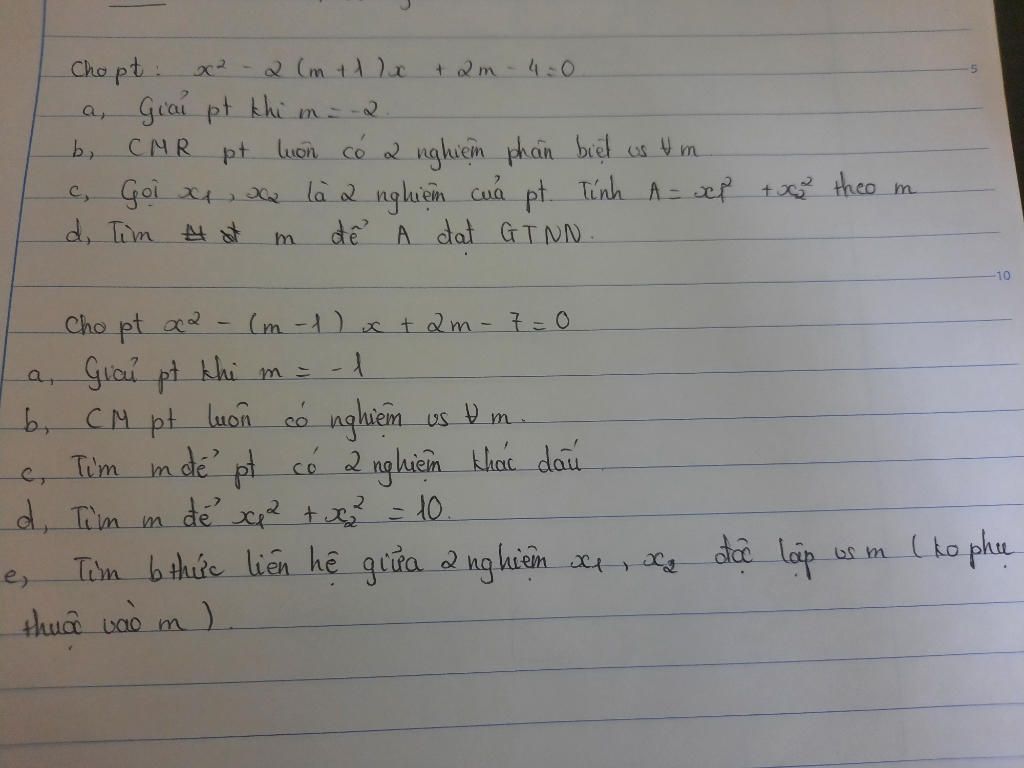 Cho pt: x² - 2(m+1)x + 2m - 4 = 0
a, Giải pt khi m = -2.
b, CMR pt luôn có 2 nghiệm phân biệt vs ∀m
c, Gọi x₁, x₂ là 2 nghiệm của pt. Tính A = x₁² + x₂² theo m
d, Tìm m để A đạt GTNN.
10
Cho pt x² - (m-1)x + 2m - 7 = 0
a, Giải pt khi m = -1
b, CM pt luôn có nghiệm vs ∀m.
c, Tìm m để pt có 2 nghiệm khác dấu
d, Tìm m để x₁² + x₂² = 10.
e, Tìm b thức liên hệ giữa 2 nghiệm x₁, x₂ độc lập vs m (ko phụ
thuộc vào m).